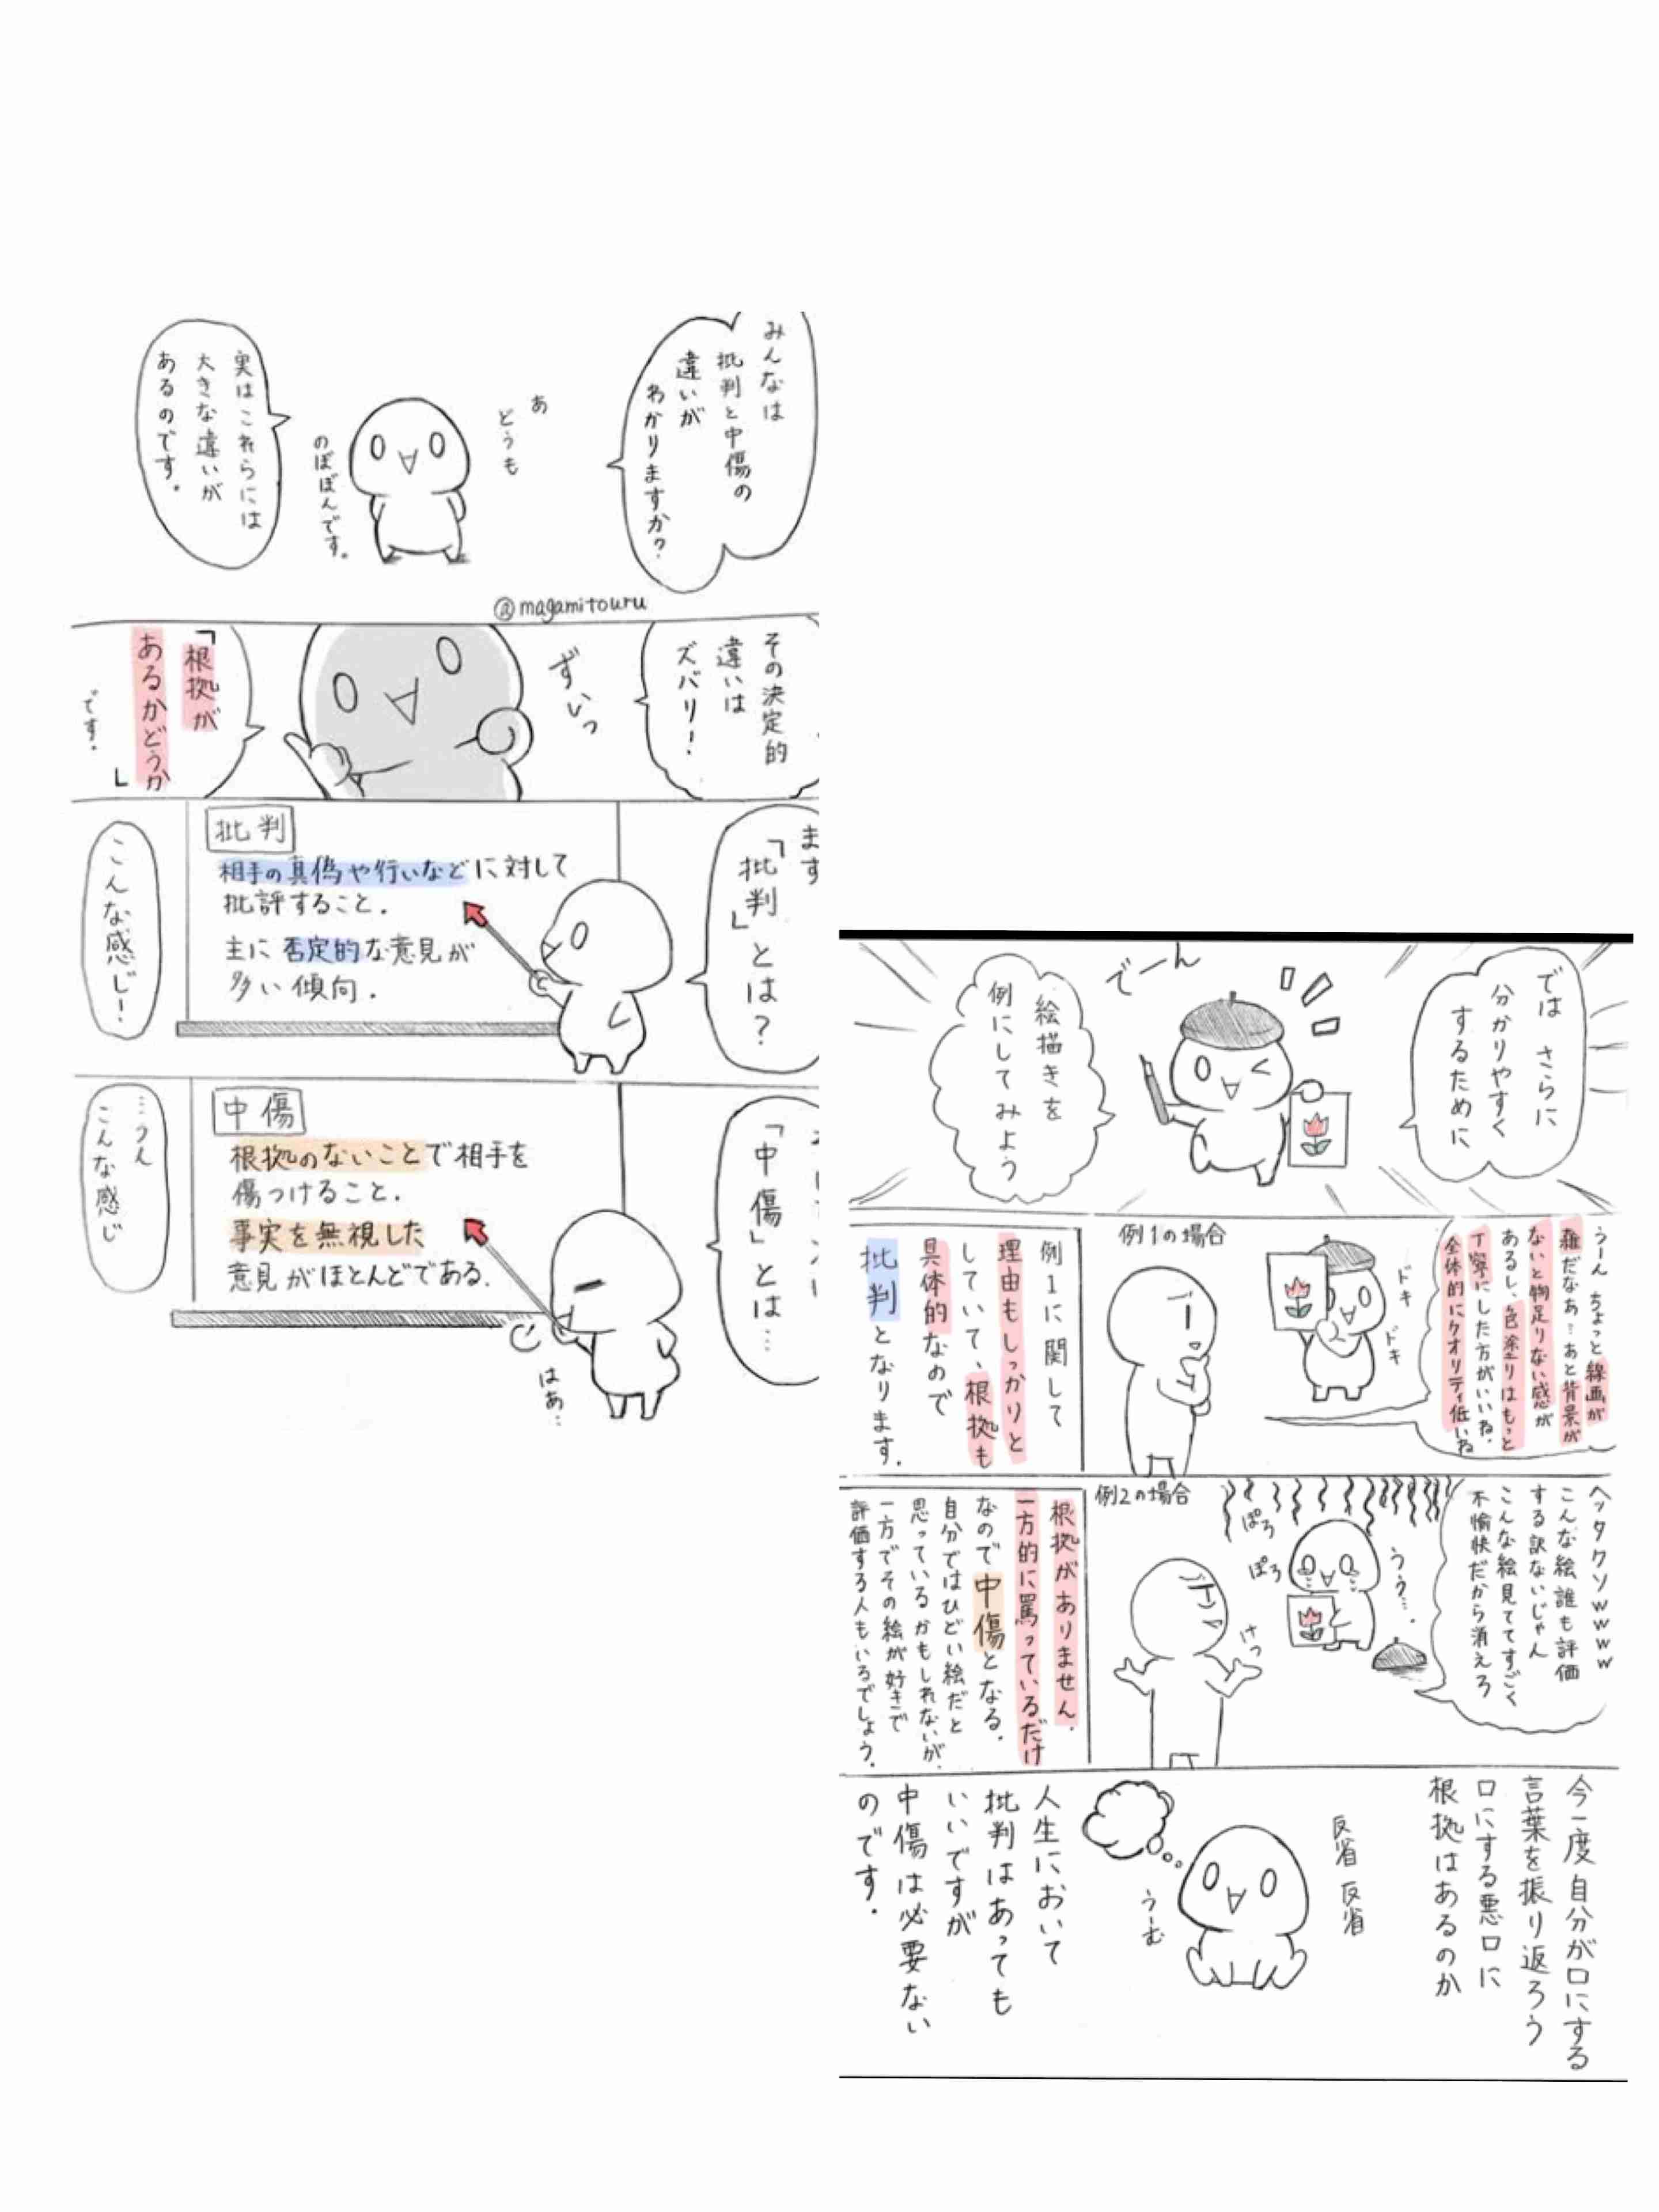 みんなは
批判と中傷の
違いが
わかりますか?
あ
どうも
のぼぼんです。
実はこれらには
大きな違いが
あるのです。
@magamitouru
その決定的
違いは
ズバリ!
ずいっ
「根拠が
あるかどうか」
です。
まず
「批判」とは?
批判
相手の真偽や行いなどに対して
批評すること.
主に否定的な意見が
多い傾向.
こんな感じ!
「中傷」とは…
中傷
根拠のないことで相手を
傷つけること.
事実を無視した
意見がほとんどである.
はぁ…
…うん
こんな感じ
では さらに
分かりやすく
するために
でーん
絵描きを
例にしてみよう
うーん ちょっと線画が
雑だなぁ…あと背景が
ないと物足りない感が
あるし、色塗りはもっと
丁寧にした方がいいね.
全体的にクオリティ低いね
ドキ
ドキ
例1の場合
例1に関して
理由もしっかりと
していて、根拠も
具体的なので
批判となります.
ヘッタクソwwww
こんな絵誰も評価
する訳ないじゃん
こんな絵見ててすごく
不愉快だから消えろ
うぅ….
ぽろ
ぽろ
けっ
例2の場合
根拠がありません.
一方的に罵っているだけ
なので中傷となる.
自分ではひどい絵だと
思っているかもしれないが.
一方でその絵が好きで
評価する人もいるでしょう.
今一度自分が口にする
言葉を振り返ろう
口にする悪口に
根拠はあるのか
反省 反省
うーむ
人生において
批判はあっても
いいですが
中傷は必要ない
のです.